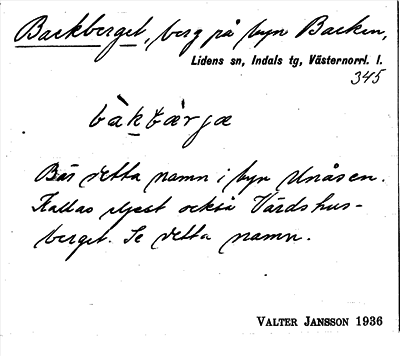 Backberget, berg på byn Backen,
Lidens sn, Indals tg, Västernorrl. l.
345
bàkbàrjæ
Bär detta namn i byn Unåsen.
Kallas eljest också Vårdshus-
berget. Se detta namn.
VALTER JANSSON 1936